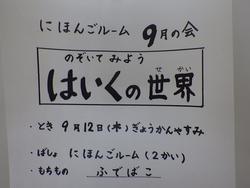 にほんごルーム 9月の会
のぞいてみよう
せかい
はいくの世界
・とき 9月12日(木)ぎょうかんやすみ
・ばしょ にほんごルーム(2かい)
・もちもの ふでばこ